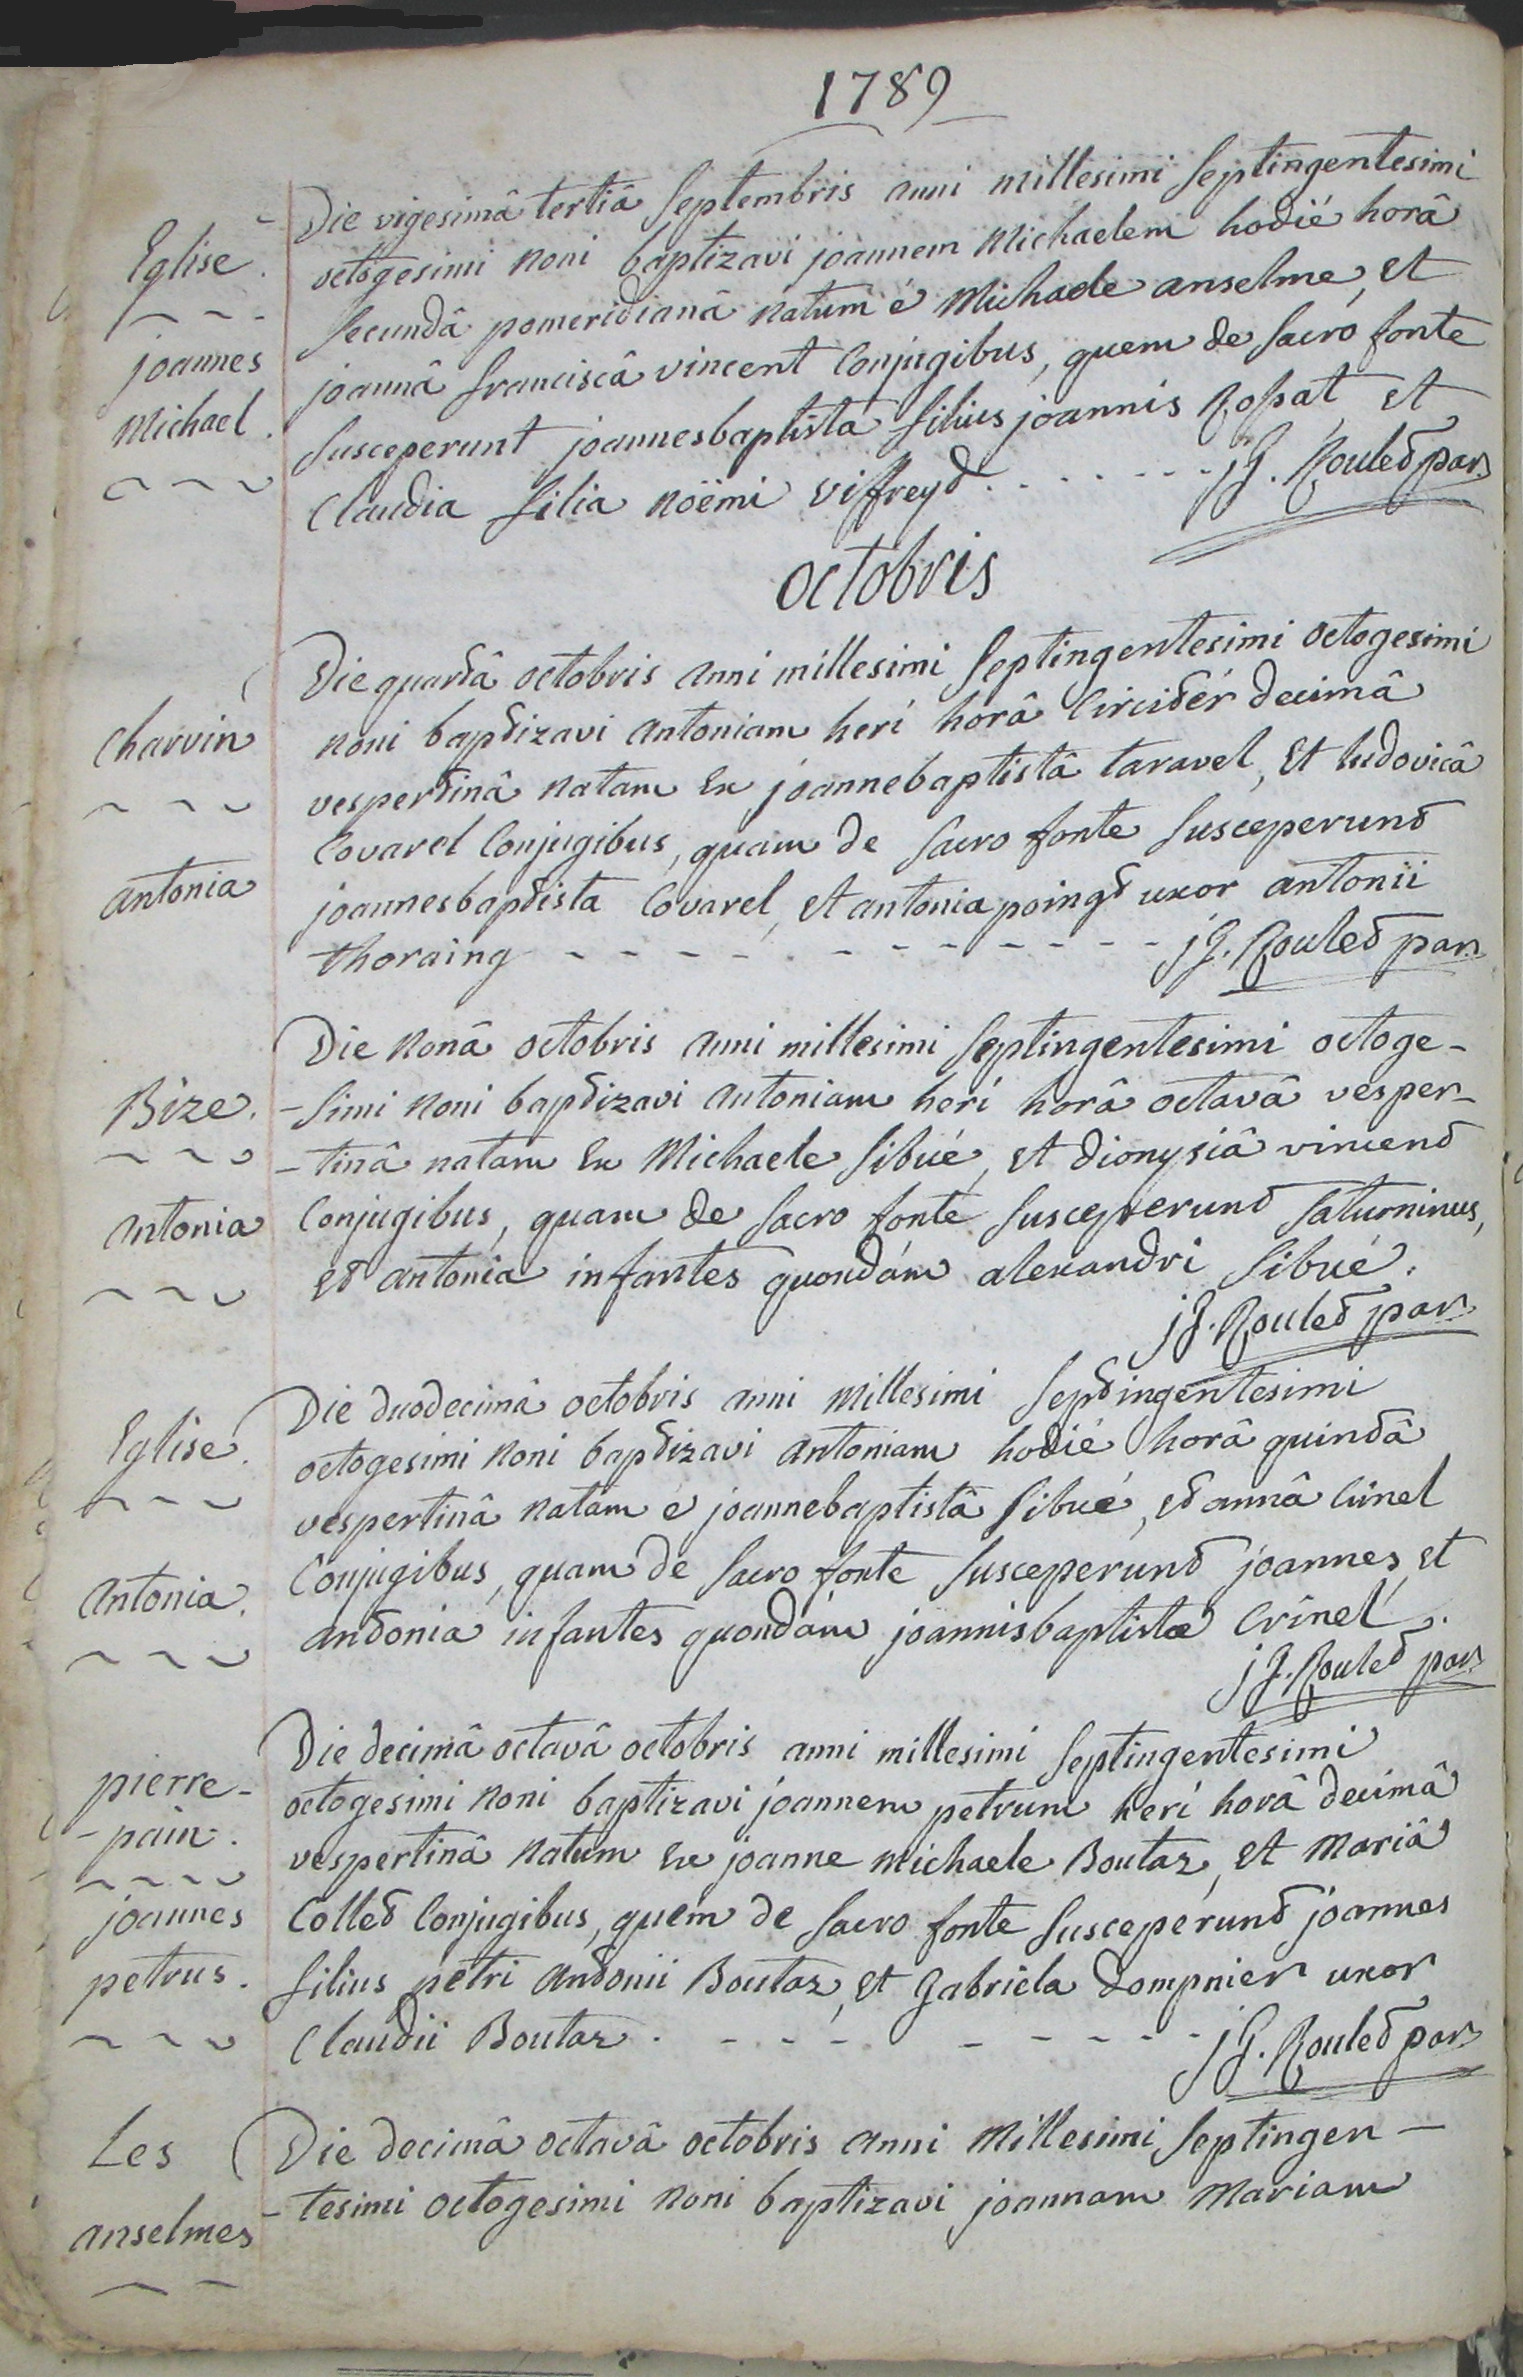 1789
Eglise.
joannes
Michael.
Die vigesimâ tertiâ Septembris anni millesimi Septingentesimi
octogesimi noni baptizavi joannem Michaelem hodié horâ
Secundâ pomeridianâ natum é Michaele anselme, et
joannâ franciscâ vincent Conjugibus, quem de Sacro fonte
Susceperunt joannesbaptista filius joannis Rossat, et
Claudia filia noëmi viffreyd. - - - - - - jG. Rouled par
octobris
Charvin
antonia
Die quartâ octobris anni millesimi Septingentesimi octogesimi
noni baptizavi antoniam herí horâ Circitér decimâ
vespertinâ natam Ex joannebaptistâ taravel, et ludovicâ
Covarel Conjugibus, quam de Sacro fonte Susceperund
joannesbaptista Covarel, et antonia poingd uxor antonii
thoraing - - - - - - - - - - - jG. Rouled par
Bize.
antonia
Die nonâ octobris anni millesimi Septingentesimi octoge-
-simi noni baptizavi antoniam herí horâ octavâ vesper-
-tinâ natam Ex Michaele Sibué, et dionysiâ vincend
Conjugibus, quam de Sacro fonte Susceperund Saturninus,
ed antonia infantes quondám alexandri Sibué.
jG. Rouled par
Eglise.
antonia.
Die duodecimâ octobris anni Millesimi Septingentesimi
octogesimi noni baptizavi antoniam hodié horâ quintâ
vespertinâ natam é joannebaptistâ Sibué, ed annâ Crinel
Conjugibus, quam de Sacro fonte Susceperund joannes, et
antonia infantes quondám joannisbaptistæ Crinel.
jG. Rouled par
pierre-
-pain.
joannes
petrus.
Die decimâ octavâ octobris anni millesimi Septingentesimi
octogesimi noni baptizavi joannem petrum herí horâ decimâ
vespertinâ natum Ex joanne michaele Boutaz, et mariâ
Colled Conjugibus, quem de Sacro fonte Susceperund joannes
filius petri antonii Boutaz, et gabriela dompnier uxor
Claudii Boutaz. - - - - - - - - jG. Rouled par
Les
anselmes
Die decimâ octavâ octobris anni Millesimi Septingen-
-tesimi octogesimi noni baptizavi joannam Mariam